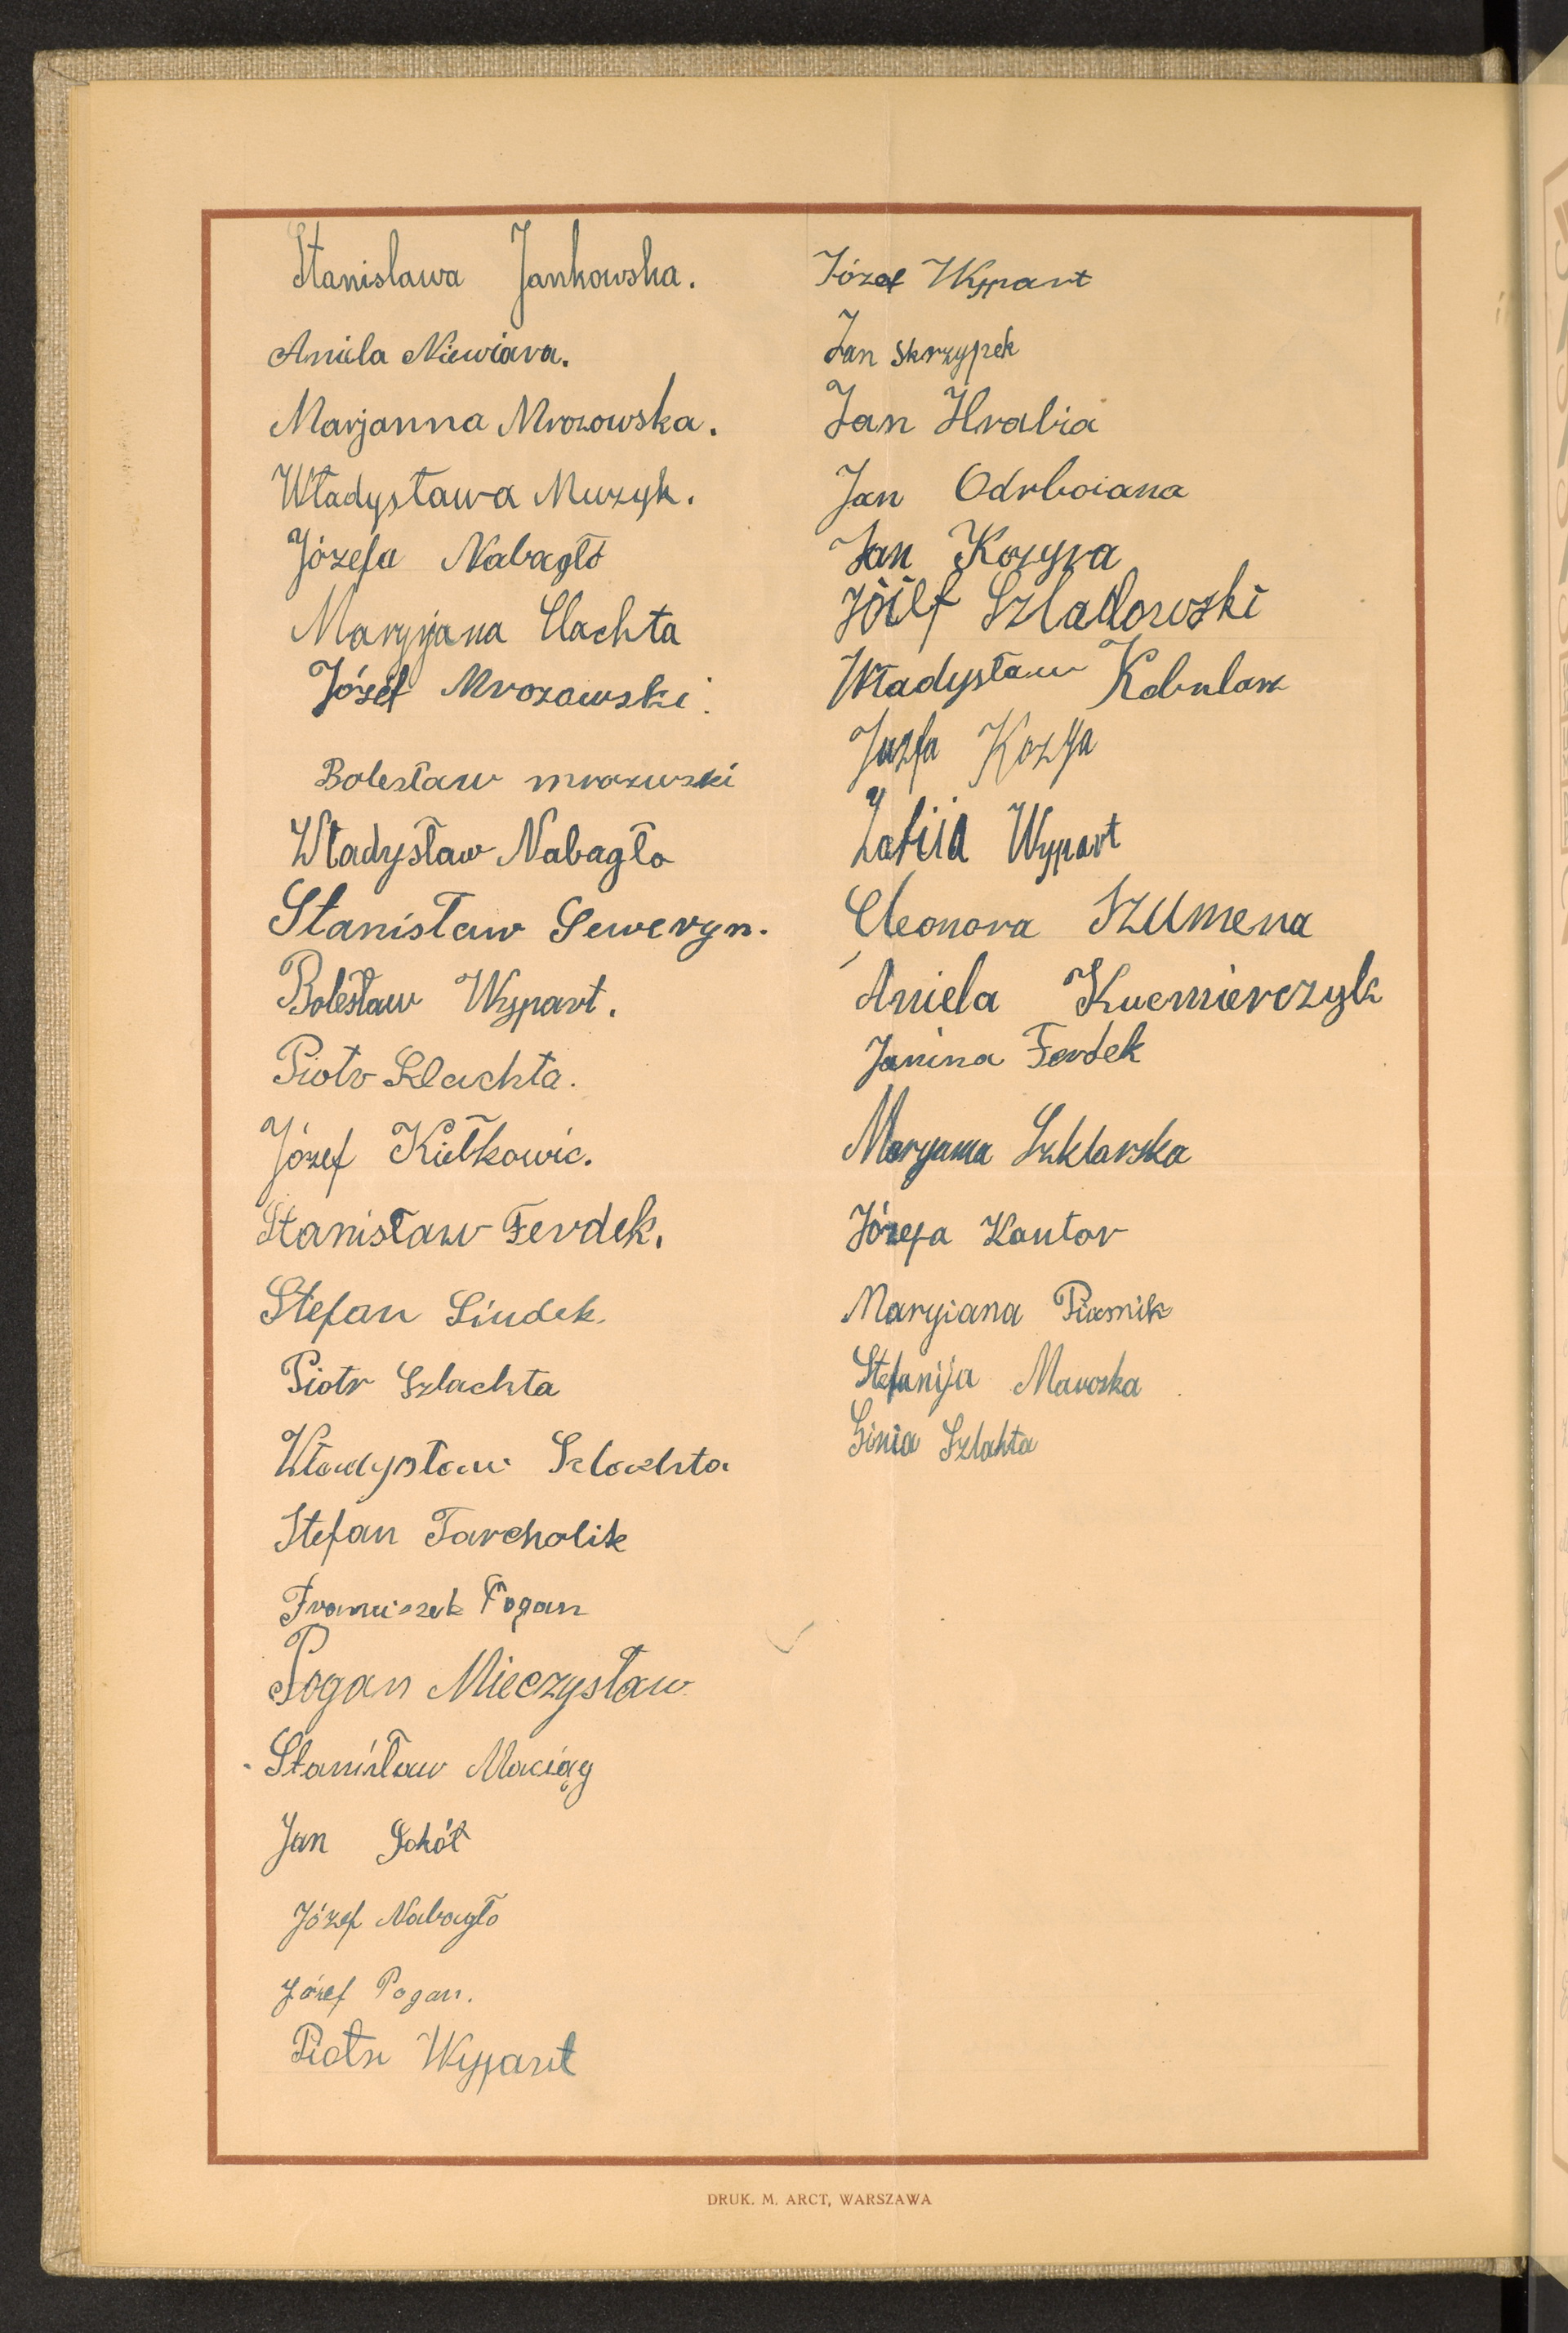 Stanisława Jankowska.
Aniela Niewiara.
Marjanna Mrozowska.
Władysława Muzyk.
Józefa Nabagło
Maryjana Slachta
Józef Mrozawski.
Bolesław mrozwski
Władysław Nabagło
Stanisław Seweryn.
Bolesław Wypart.
Piotr Szlachta.
Józef Kiełkowic.
Stanisław Ferdek.
Stefan Siudek.
Piotr Szlachta
Władysław Szlachta
Stefan Tarcholik
Franciszek Pogan
Pogan Mieczysław
Stanisław Maciąg
Jan Sokół
Józef Nabagło
Józef Pogan.
Piotr Wypart
Józef Wypart
Jan Skrzypek
Jan Hrabia
Jan Odrboiana
Jan Kozyra
Józef Szladowski
Władysław
Józfa
Wypart
Eleonora Szumena
Aniela Kucmierczyk
Janina Ferdek
Maryanna Szklarska
Józefa Kantor
Maryiana
Stefanija Maroszka
Ginia Szlahta
DRUK. M. ARCT, WARSZAWA